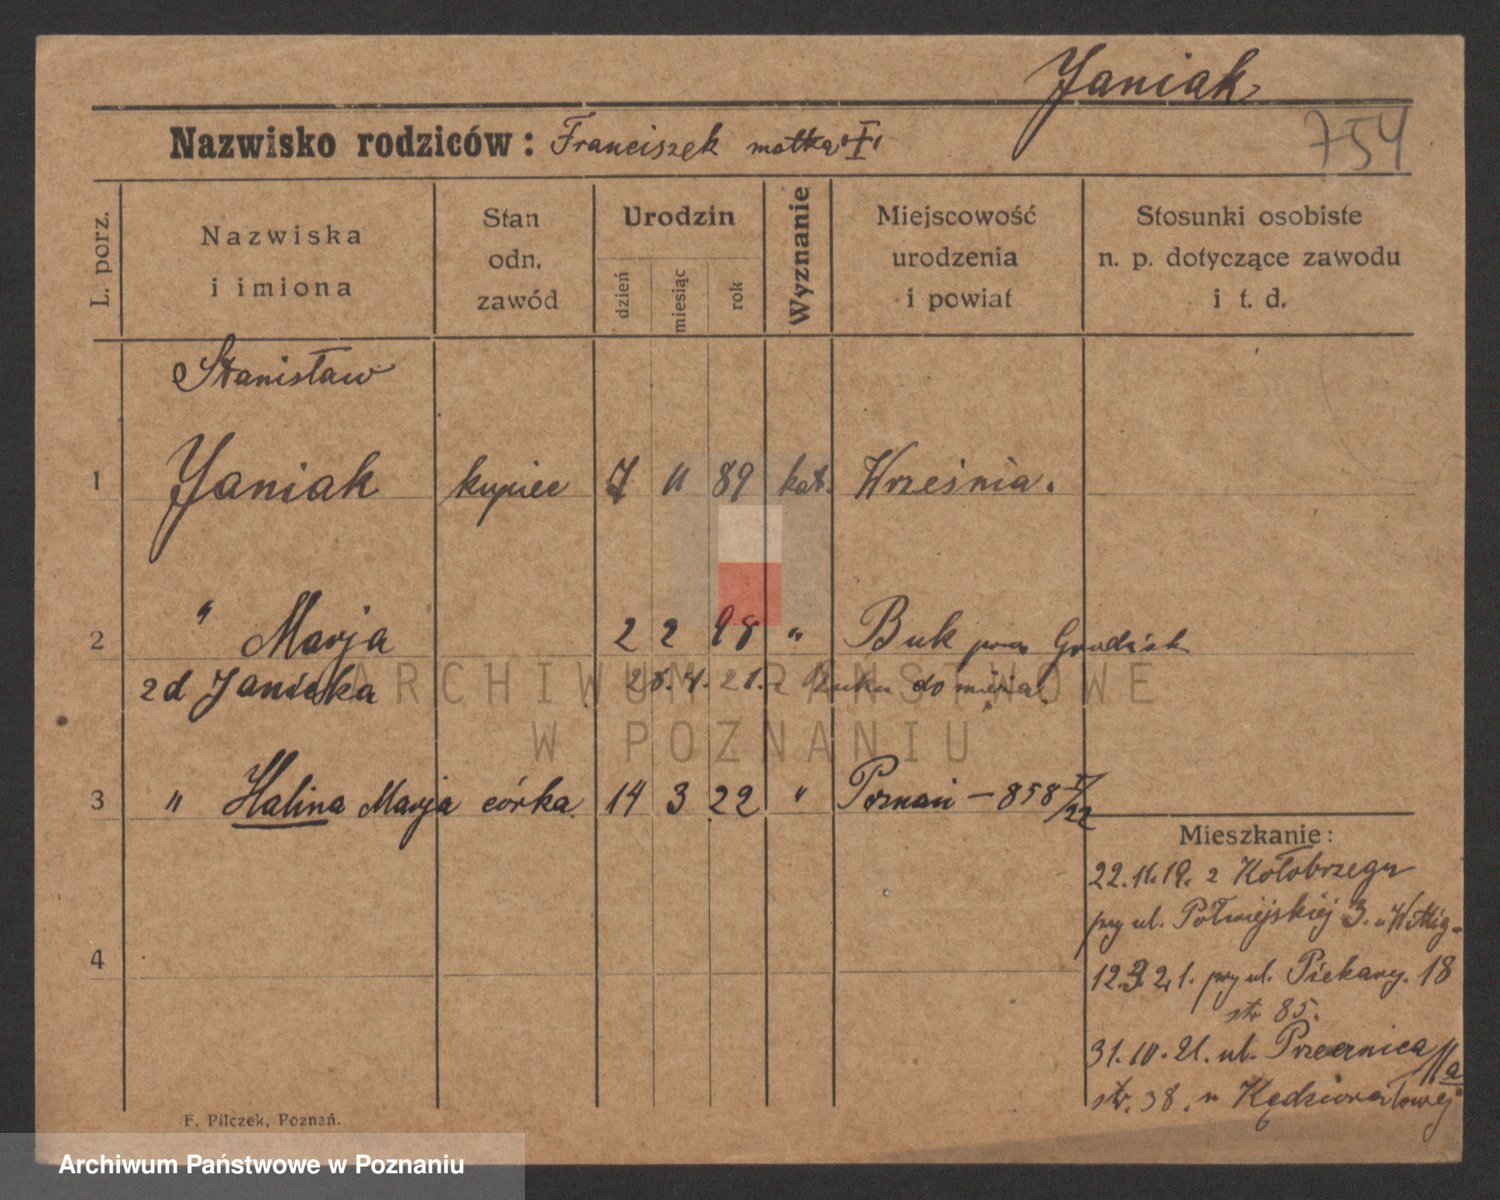 Janiak
Nazwisko rodziców: Franciszek matka
754
L. porz.
Nazwiska
i imiona
Stan
odn.
zawód
Urodzin
dzień
miesiąc
rok
Wyznanie
Miejscowość
urodzenia
i powiat
Stosunki osobiste
n. p. dotyczące zawodu
i t. d.
Stanisław
1 Janiak kupiec 7 11 89 kat. Września.
2 " Marja 2 2 98 " Buk pow Grodzisk
zd Janicka 4. 21. z Buku do męża
ARCHIWUM PAŃSTWOWE
W POZNANIU
3 " Halina Marja córka 14 3 22 " Poznań – 858 I/22
Mieszkanie:
22.11.19. z Kołobrzegu
przy ul. Półwiejskiej 3.
4
12.3.21. przy ul. Piekary. 18
str 85.
31.10.21. ul. 11a
str. 38. u
F. Pilczek, Poznań.
Archiwum Państwowe w Poznaniu